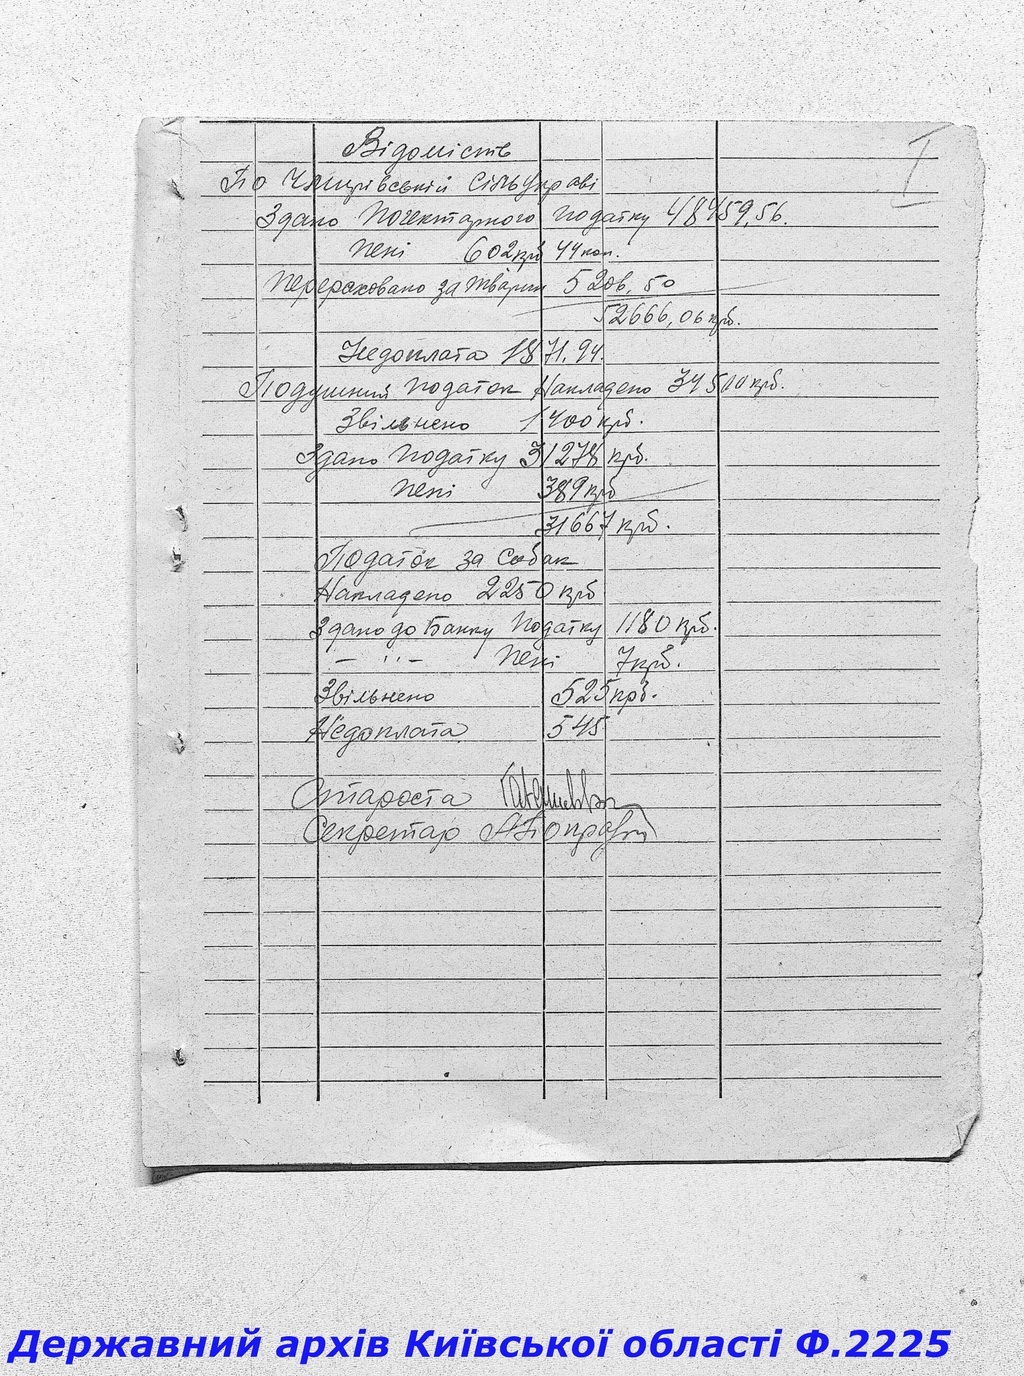 I
Відомість
По Чмирівській Сільуправі
Здано Погектарного податку 48459,56.
Пені 602крб 44коп.
Перераховано за тварин 5206,50
52666,06крб.
Недоплата 1871.94.
Подушний податок Накладено 34510крб.
Звільнено 1400крб.
Здано податку 31278 крб.
Пені 389крб
31667 крб.
Податок за Собак
Накладено 2250крб
Здано до Банку Податку 1180крб.
— " — Пені 7крб.
Звільнено 525крб.
Недоплата 545
Староста
Секретар
Державний архів Київської області Ф.2225